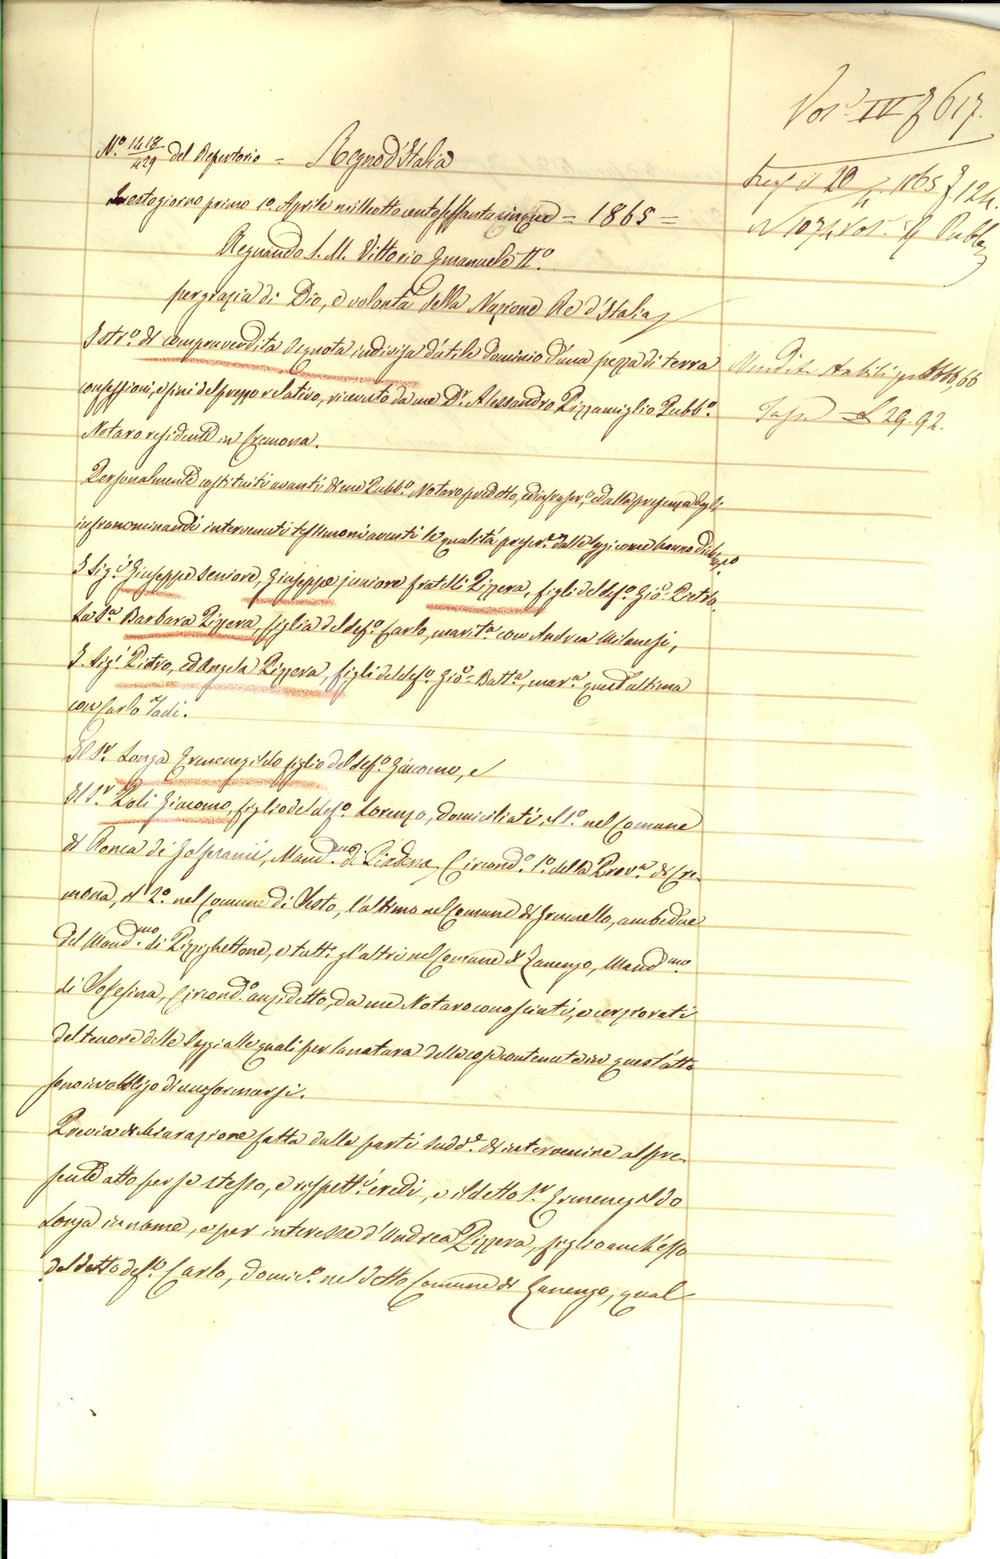 Vol.e IV f 617.
N.o 1418/429 del Repertorio = Regno d'Italia
Reg il 20/4 1865 f 124.
N 1074 Vol. 4 Pubbl
Questo giorno primo 1.o Aprile mille otto cento sessanta cinque = 1865 =
Regnando S. M. Vittorio Emanuele II.o
per grazia di Dio, e volontà della Nazione Re d'Italia
Istr.o di compravendita di quota indivisa d'utile dominio d'una pezza di terra
confessioni, e fini del prezzo relativo, ricevuto da me D.r Alessandro Pizzamiglio Pubb.o
Notaro residente in Cremona.
Vendite stabili per
Tassa £ 29. 92.
Personalmente costituiti avanti di me Pubb.o Notaro predetto, ed infrascr.o, ed alla presenza degli
infranominandi intervenuti testimoni aventi le qualità prescr.e dalle leggi come hanno
I Sig.i Giuseppe seniore, Giuseppe juniore fratelli Pizzera, figli del def.o Gio. Pietro.
La S.a Barbara Pizzera, figlia del def.o Carlo, marit.a con Andrea Milanesi,
I Sig.i Pietro, ed Angela Pizzera, figli del def.o Gio. Batt.a, mar.a quest'ultima
con Carlo Tadi.
Il S.r Longa Ermenegildo figlio del def.o Giacomo, e
Il S.r Poli Giacomo, figlio del def.o Lorenzo, domiciliati, il 1.o nel Comune
di Ronca de' Golferami, Mand.mo di Piadena, Circond.o 1.o della Prov.a di Cre-
mona, il 2.o nel Comune di Sesto, l'ultimo nel Comune di Grumello, ambedue
del Mand.mo di Pizzighettone, e tutti gl'altri nel Comune di Zanengo, Mand.mo
di Soresina, Circond.o anzidetto, da me Notaro conosciuti, e cerziorati
del tenore delle leggi alle quali per la natura delle cose contenute in quest'atto
sono in obbligo di uniformarsi.
Previa dichiarazione fatta dalle parti sudd.e di intervenire al pre-
sente atto per se stesso, e rispett.i eredi, e il detto S.r Ermenegildo
Longa in nome, e per interesse d'Andrea Pizzera, figlio anch'esso
del detto def.o Carlo, domic.o nel detto Comune di Zanengo, qual